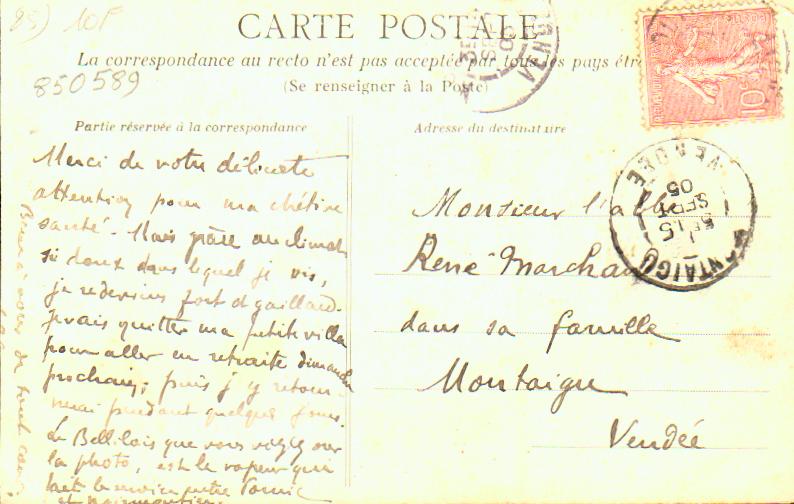 85) 10F
CARTE POSTALE
La correspondance au recto n'est pas acceptée par tous les pays étr
850589
(Se renseigner à la Poste)
Partie réservée à la correspondance
Adresse du destinataire
Merci de votre délicate
attention pour ma chétive
santé. Mais grâce au climat
si doux dans lequel je vis,
je redeviens fort et gaillard.
Je vais quitter ma petite villa
pour aller en retraite dimanche
prochain; puis j'y retour-
nerai pendant quelques jours.
Le Bellilois que vous voyez sur
la photo, est le vapeur qui
fait le service entre Pornic
et Noirmoutier.
Bien à vous de tout cœur
Monsieur l'abbé
René Marchan
dans sa famille
Montaigu
Vendée
MONTAIGU
VENDÉE
15
SEPT
05
10